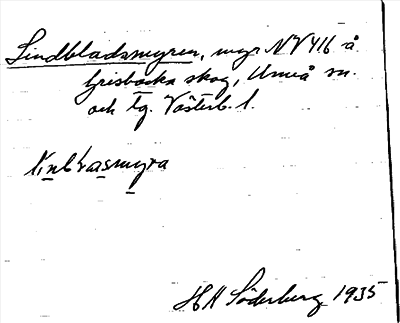 Lindbladsmyren, myr NV 416 å
Grisbacka skog, Umeå sn.
och tg. Västerb. l.
H A Söderberg 1935